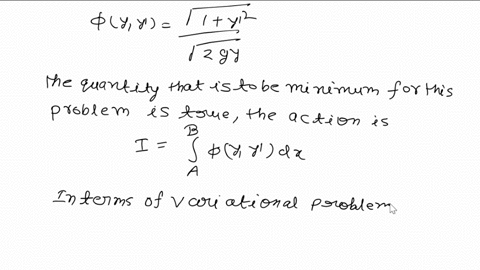 ϕ(y,y') = √(1+y'²) / √(2gy)
the quantity that is to be minimum for this
problem is towe, the action is
I = ∫_A^B ϕ(y,y') dx
In terms of variational problem